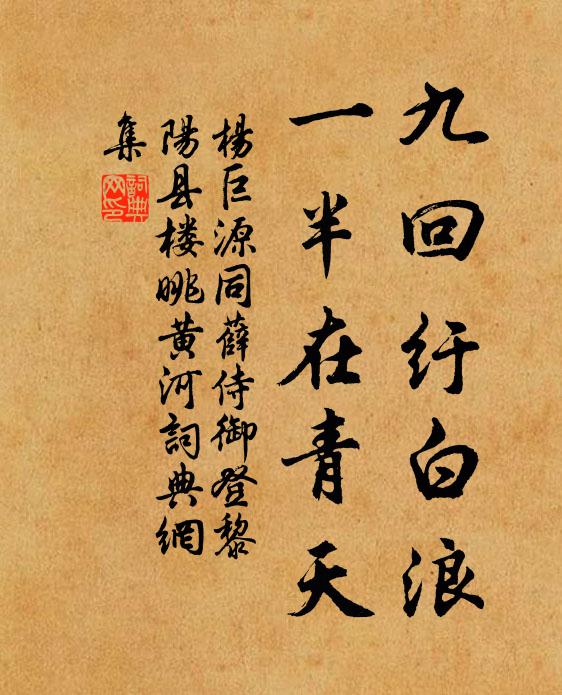 九回纡白浪
一半在青天
楊巨源同薛侍御登黎
陽县楼眺黄河詞典網
集
詞典
网印